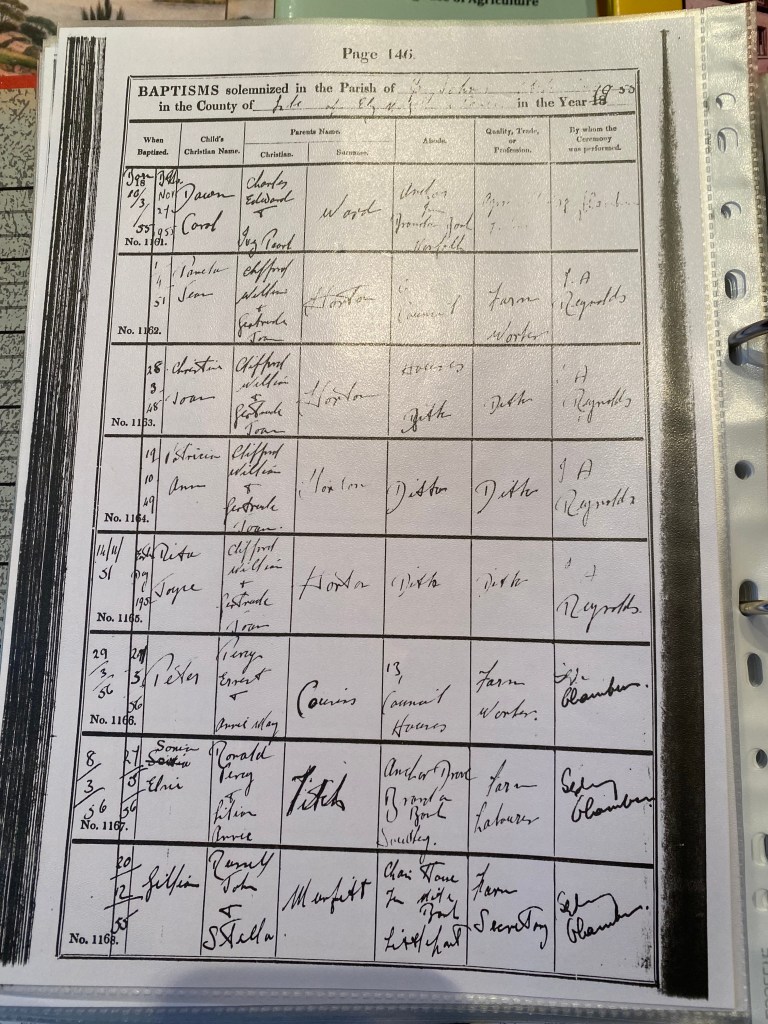 of Agriculture
Page 146.
BAPTISMS solemnized in the Parish of St John 1955
in the County of Isle of Ely in the Year 18
When Baptized.
Child's Christian Name.
Parents Name.
Christian.
Surname.
Abode.
Quality, Trade, or Profession.
By whom the Ceremony was performed.
Born
10/3/55
Nov 27 1955
No. 1161.
Dawn Carol
Charles Edward + Joy Pearl
Ward
Anchor Brandon Bank Norfolk
No. 1162.
Pamela Jean
Clifford William + Gertrude Joan
Horton
Council
Farm Worker
J. A Reynolds
28 3 48
No. 1163.
Christine Joan
Clifford William + Gertrude Joan
Horton
Houses
Ditto
Ditto
A Reynolds
19 10 49
No. 1164.
Patricia Ann
Clifford William + Gertrude Joan.
Horton
Ditto
Ditto
J A Reynolds
14/11/51
No. 1165.
Rita Joyce
Clifford William + Gertrude Joan
Horton
Ditto
Ditto
Reynolds.
29/3/56
No. 1166.
Peter
Percy Ernest + Annie May
Cousins
13
Council Houses
Farm Worker.
Chambers.
8/3/56
27/5/56
No. 1167.
Sonia
Elsie
Ronald Percy + Lilian Annie
Fitch
Anchor Drove Brandon Bank Southery.
Farm Labourer
Sydney Chambers
20/12/55
No. 1168.
Gillian
Russell John + Stella
Murfitt
Chair House Ten Mile Bank Littleport
Farm Secretary
Sydney Chambers.